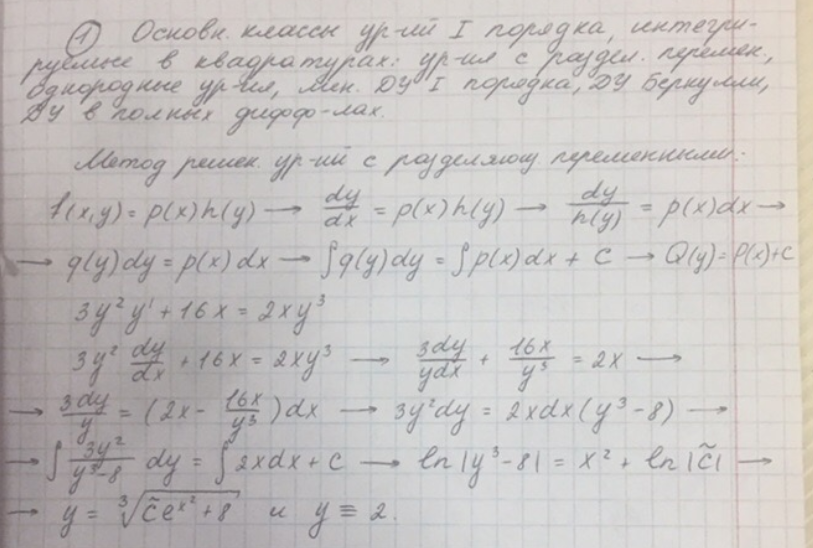 ① Основн. классы ур-ий I порядка, интегри-
руемые в квадратурах: ур-ия с раздел. перемен.,
однородные ур-ия, лин. ДУ I порядка, ДУ Бернулли,
ДУ в полных дифф-лах.
Метод решен. ур-ий с разделяющ. переменными:
f(x,y) = p(x)h(y) → dy/dx = p(x)h(y) → dy/h(y) = p(x)dx →
→ q(y)dy = p(x)dx → ∫q(y)dy = ∫p(x)dx + C → Q(y) = P(x)+C
3y²y' + 16x = 2xy³
3y² dy/dx + 16x = 2xy³ → 3dy/ydx + 16x/y³ = 2x →
→ 3dy/y = (2x - 16x/y³)dx → 3y²dy = 2xdx(y³-8) →
→ ∫ 3y²/y³-8 dy = ∫2xdx + C → ln|y³-8| = x² + ln|C̃| →
→ y = ∛C̃e^x² + 8 и y ≡ 2.